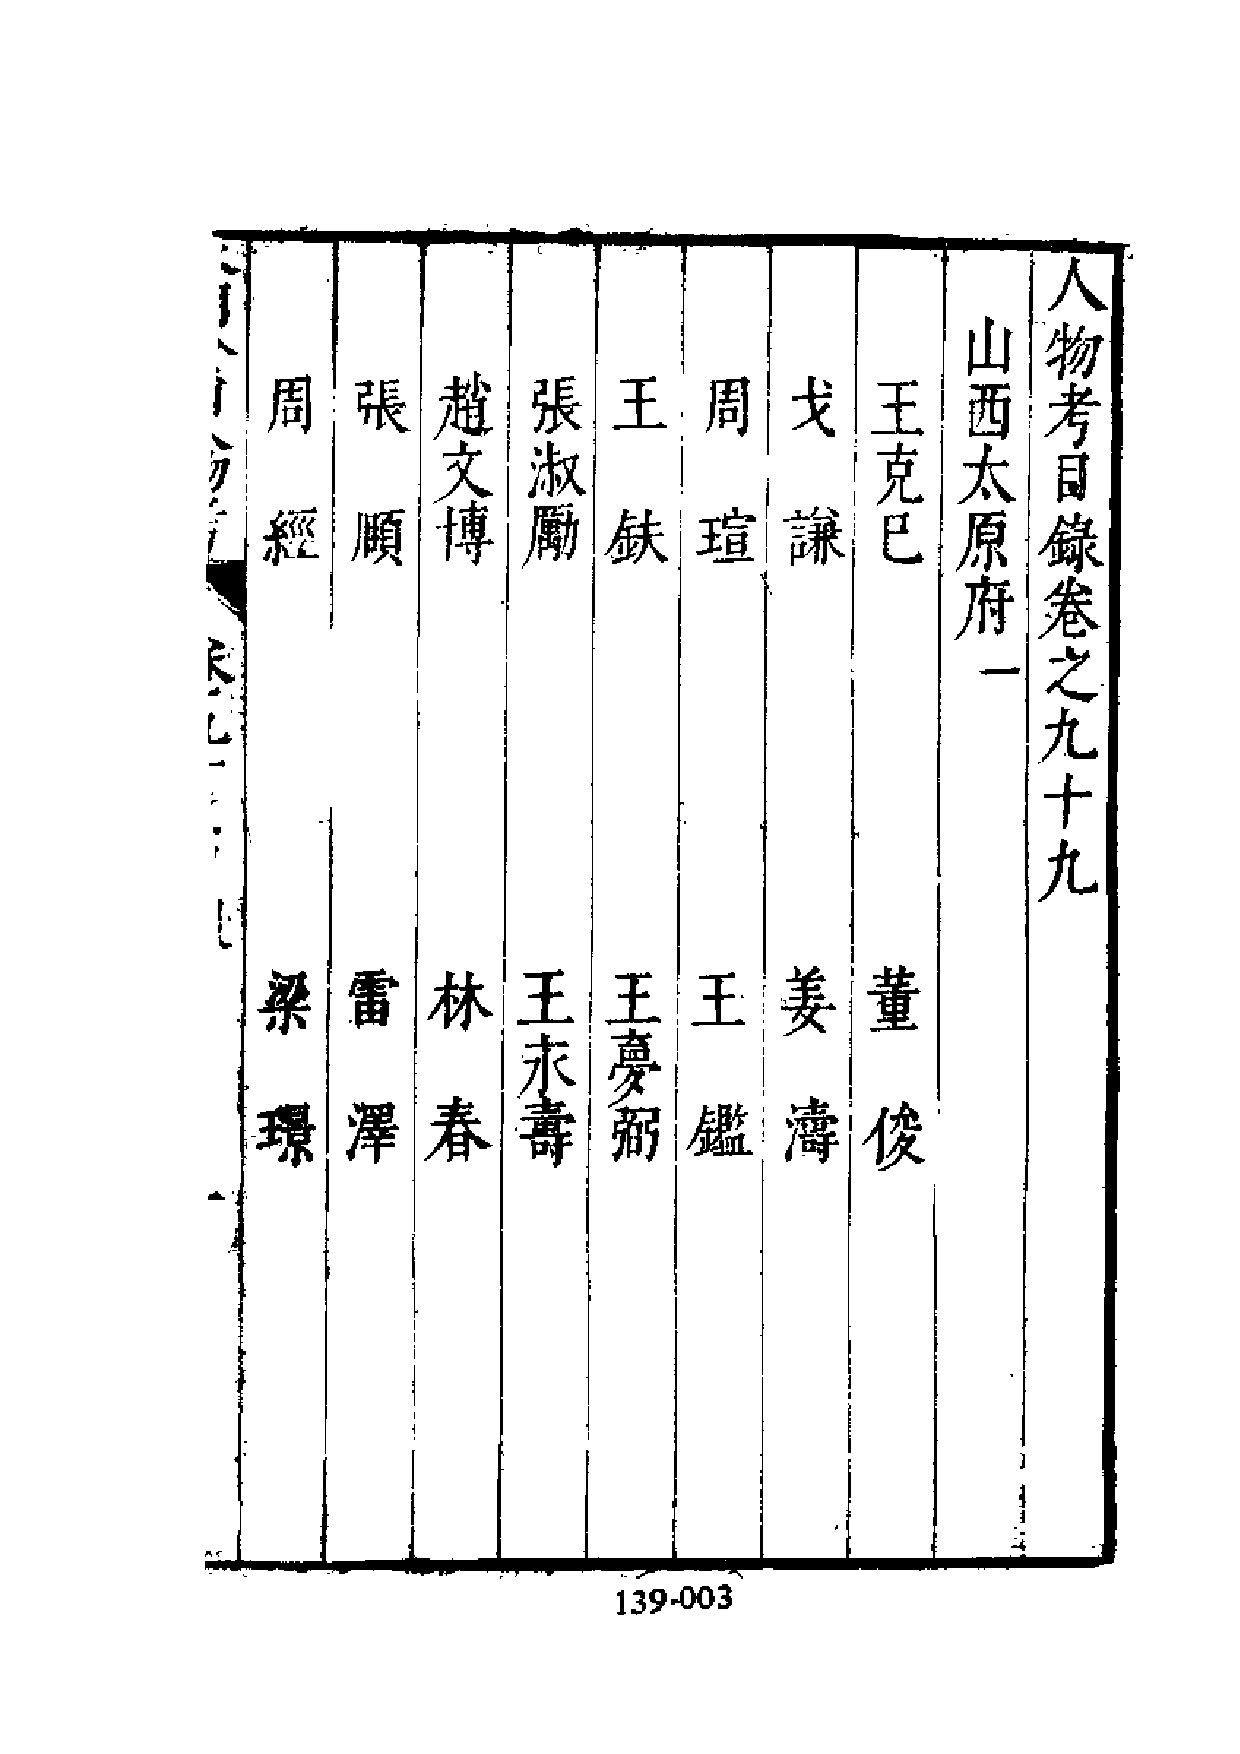 人物考目錄卷之九十九
山西太原府一
王克巳 董俊
戈謙 姜濤
周瑄 王鑑
王鈇 王夢弼
張淑勵 王永壽
趙文博 林春
張順 雷澤
周經 梁璟
139-003